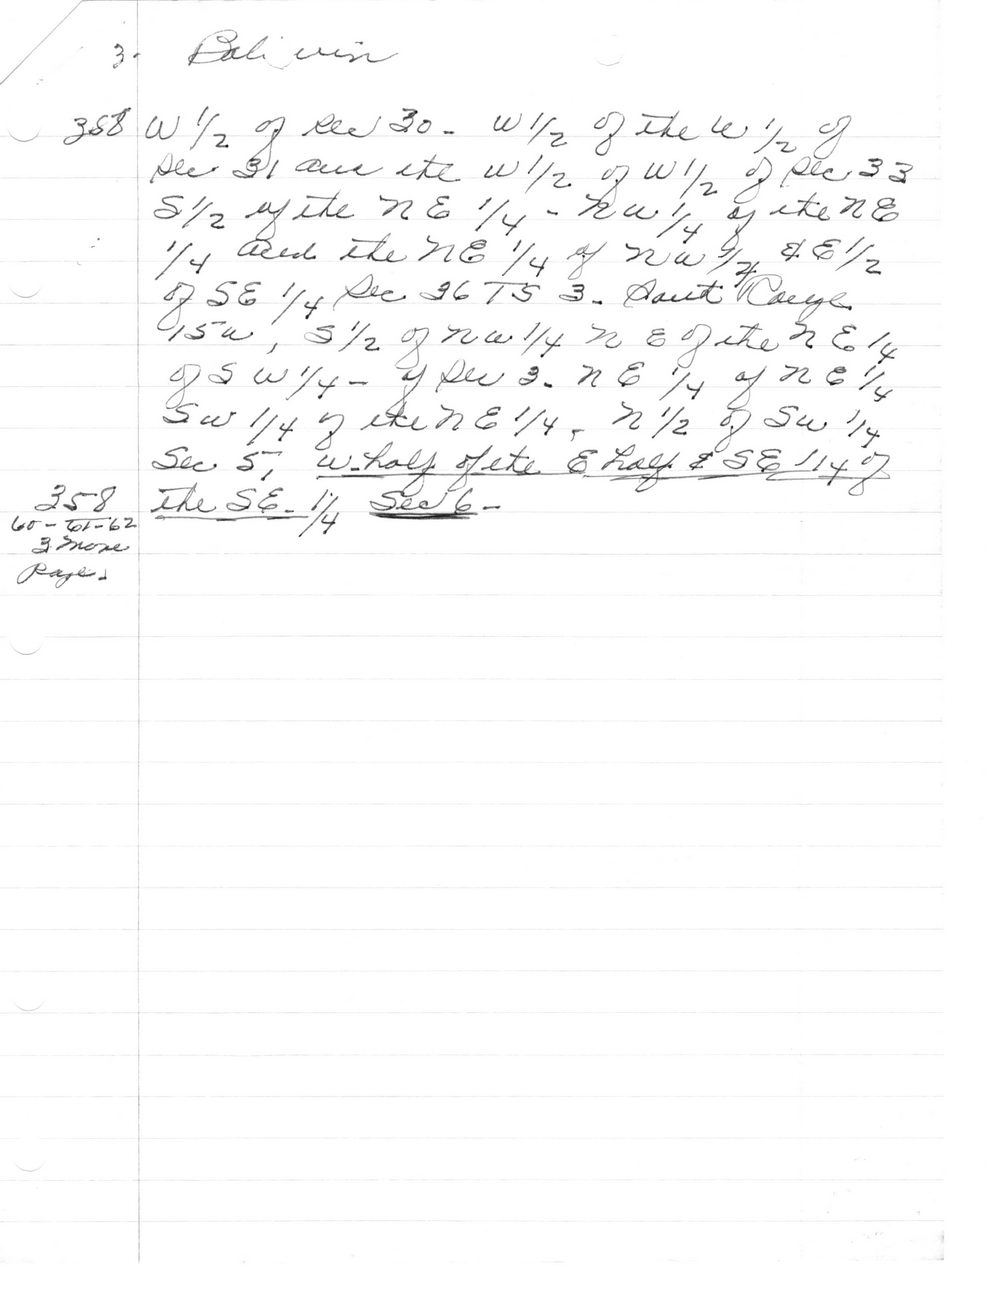 3-
358 W 1/2 of Sec 30 - W 1/2 of the W 1/2 of
Sec 31 and the W 1/2 of W 1/2 of Sec 33
S 1/2 of the N E 1/4 - N W 1/4 of the N E
1/4 and the N E 1/4 of N W 1/4 & E 1/2
of S E 1/4 Sec 36 T S 3. Range
15 W, S 1/2 of N W 1/4 N E of the N E 1/4
of S W 1/4 - of Sec 3. N E 1/4 of N E 1/4
S W 1/4 of the N E 1/4, N 1/2 of S W 1/4
Sec 5, W. half of the E half & S E 1/4 of
358 the S E. 1/4 Sec 6 -
60 - 61 - 62
3 more
Page.